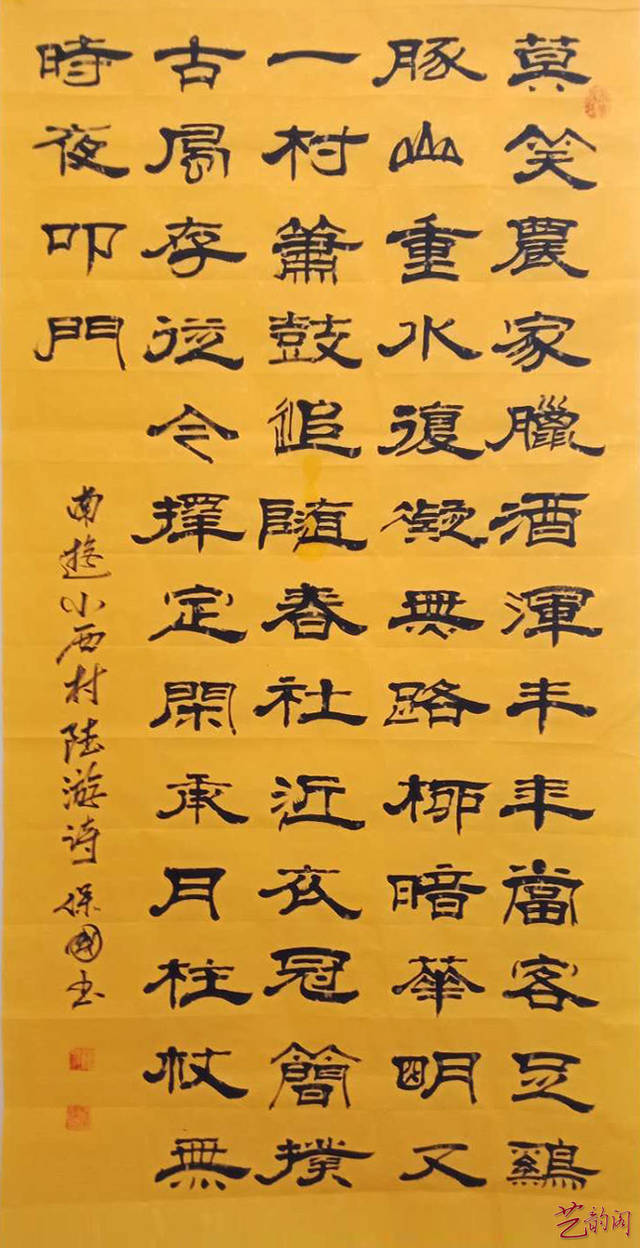 莫笑農家臘酒渾丰年當客足鷄
豚山重水復疑無路柳暗華明又
一村簫鼓追随春社近衣冠簡撲
古風存從今擇定閑承月柱杖無
時夜叩門
南遊小西村陆游诗 保國书
艺韵阁